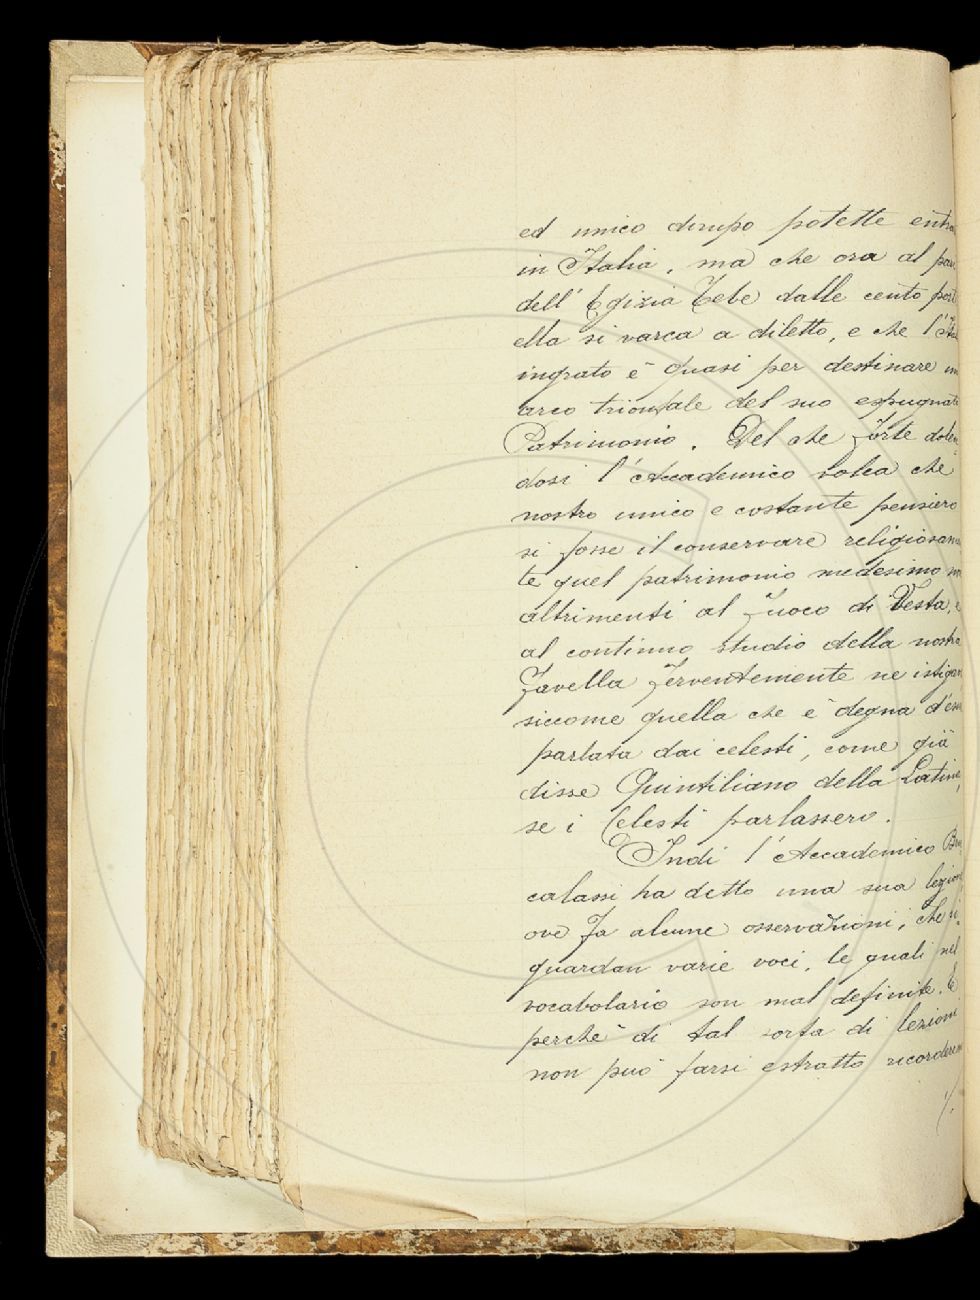 ed unico dirupo potette entra
in Italia, ma che ora al par
dell' Egizia Tebe dalle cento port
ella si varca a diletto, e che l'
ingrato è quasi per destinare un
arco trionfale del suo espugnato
Patrimonio. Del che forte dolen-
dosi l'Accademico volea che
nostro unico e costante pensiero
si fosse il conservare religiosamen
te quel patrimonio medesimo non
altrimenti al fuoco di Vesta, e
al continuo studio della nostra
favella ferventemente ne istigav
siccome quella che è degna d'ess
parlata dai celesti, come già
disse Quintiliano della Latina,
se i Celesti parlassero.
Indi l'Accademico Bru
calassi ha detto una sua lezione
ove fa alcune osservazioni, che ri-
guardan varie voci, le quali nel
vocabolario son mal definite. E
perchè di tal sorta di lezioni
non può farsi estratto ricorderem